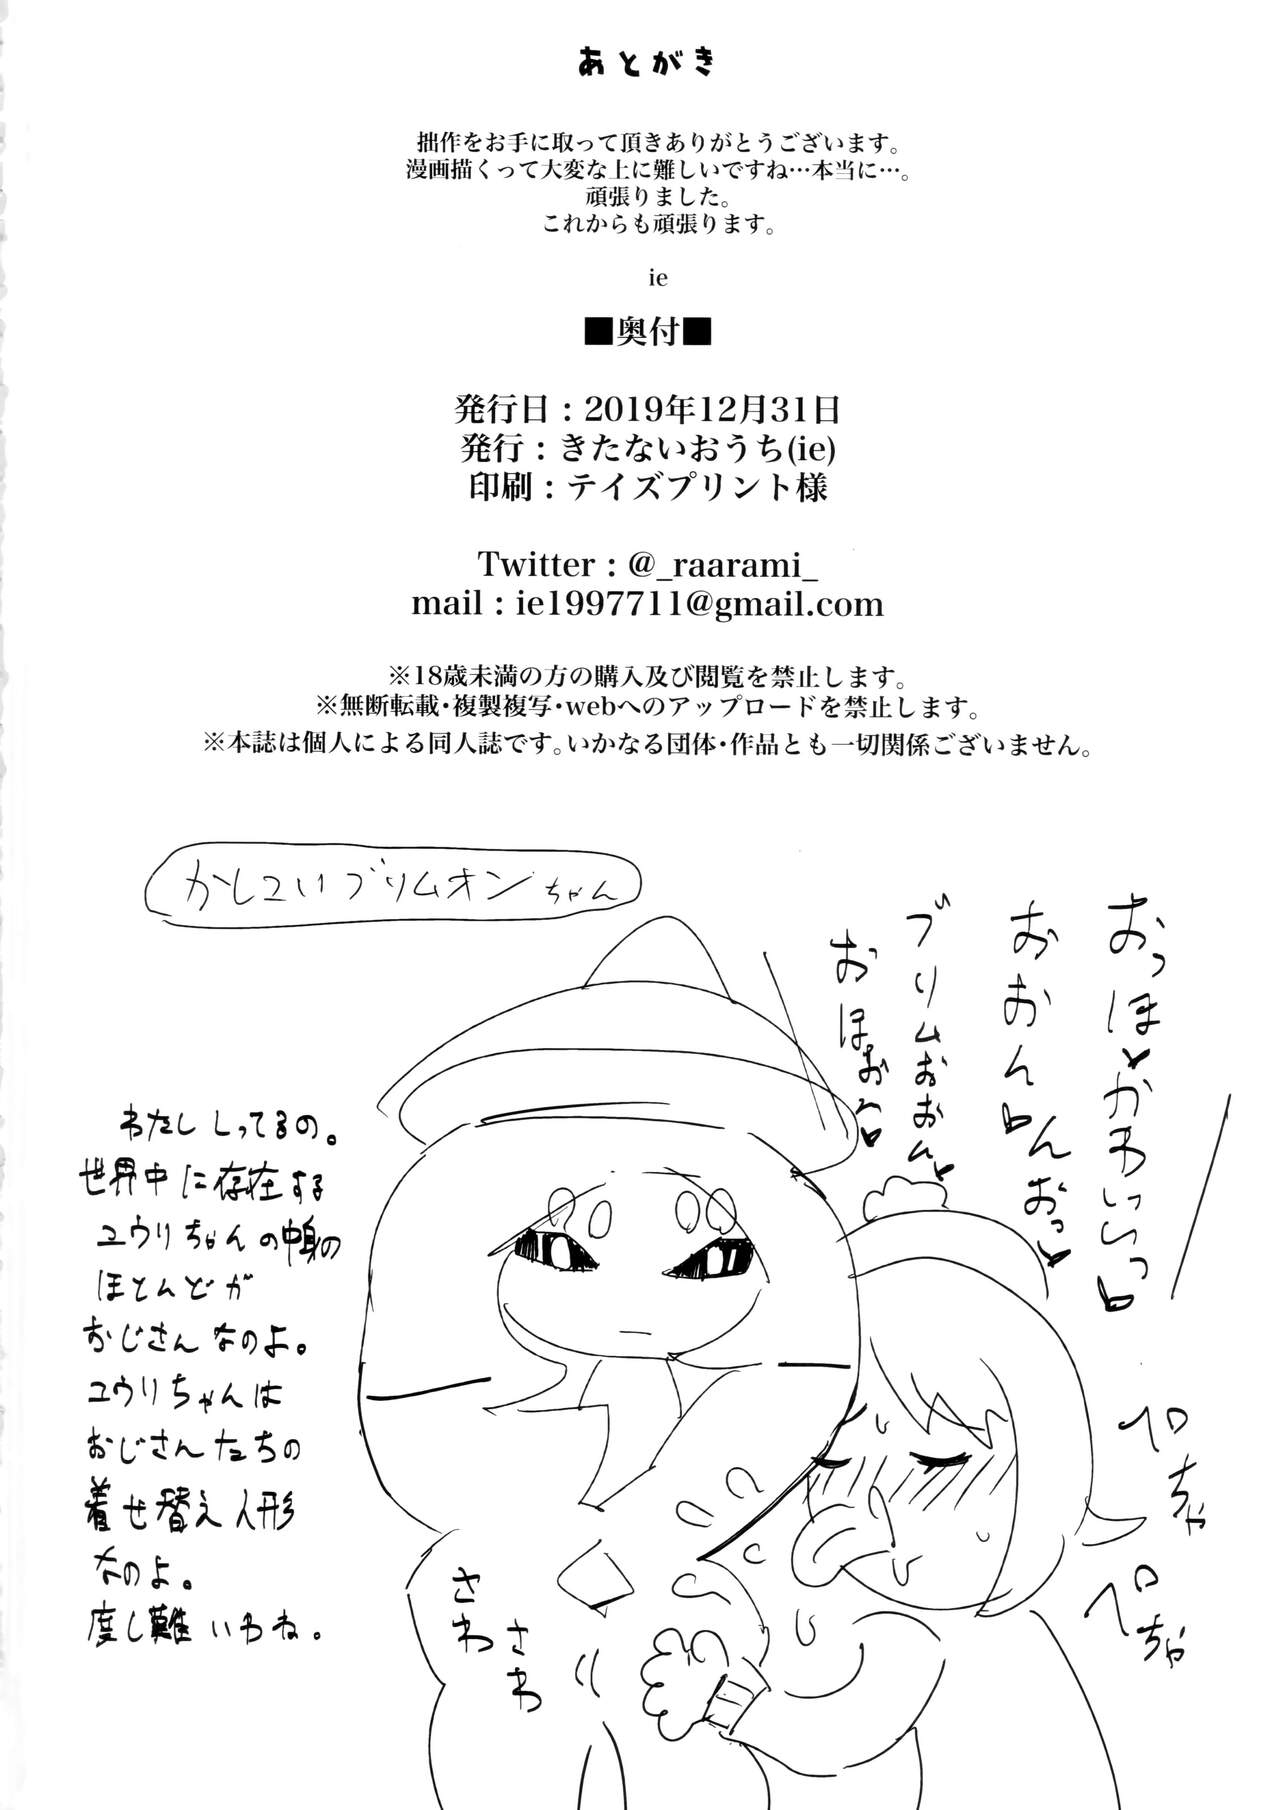 あとがき
拙作をお手に取って頂きありがとうございます。
漫画描くって大変な上に難しいですね…本当に…。
頑張りました。
これからも頑張ります。
ie
■奥付■
発行日：2019年12月31日
発行：きたないおうち(ie)
印刷：テイズプリント様
Twitter : @_raarami_
mail : ie1997711@gmail.com
※18歳未満の方の購入及び閲覧を禁止します。
※無断転載・複製複写・webへのアップロードを禁止します。
※本誌は個人による同人誌です。いかなる団体・作品とも一切関係ございません。
かしこいブリムオンちゃん
おっほ♥かわいいっ♥
おおん♥んおっ♥
ブリムおおん♥
おほお〜♥
わたししってるの。
世界中に存在する
ユウリちゃんの中身の
ほとんどが
おじさんなのよ。
ユウリちゃんは
おじさんたちの
着せ替え人形
なのよ。
度し難いわね。
ペロちゃ
ペロちゃ
さわ
さわ